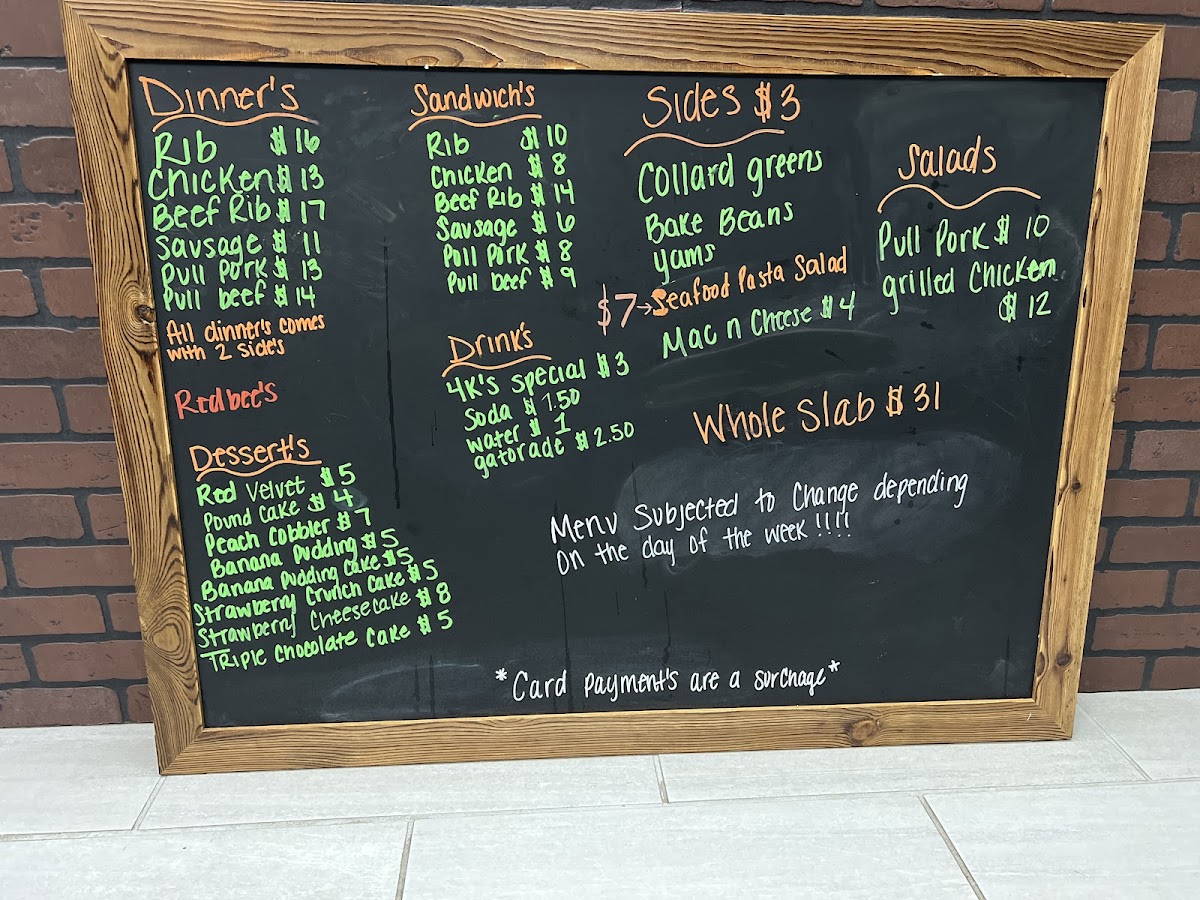 Dinner's
Rib $16
Chicken $13
Beef Rib $17
Sausage $11
Pull Pork $13
Pull beef $14
All dinner's comes
with 2 side's
Redbee's
Dessert's
Red Velvet $5
Pound Cake $4
Peach Cobbler $7
Banana Pudding $5
Banana Pudding Cake $5
Strawberry Crunch Cake $5
Strawberry Cheesecake $8
Triple Chocolate Cake $5
Sandwich's
Rib $10
Chicken $8
Beef Rib $14
Sausage $6
Pull Pork $8
Pull beef $9
Drink's
4K's special $3
Soda $1.50
water $1
gatorade $2.50
Sides $3
Collard greens
Bake Beans
yams
$7→Seafood Pasta Salad
Mac n Cheese $4
Salads
Pull Pork $10
grilled Chicken
$12
Whole Slab $31
Menu Subjected to Change depending
on the day of the week!!!!
*Card payment's are a surchage*